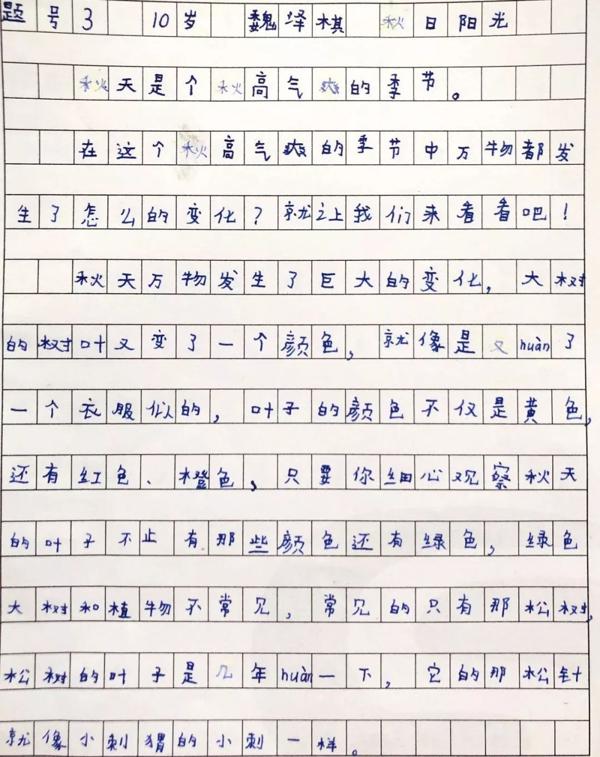 题号3 10岁 魏泽棋 秋日阳光
秋天是个秋高气爽的季节。
在这个秋高气爽的季节中万物都发
生了怎么的变化?就让我们来看看吧!
秋天万物发生了巨大的变化,大树
的树叶又变了一个颜色,就像是又huàn了
一个衣服似的,叶子的颜色不仅是黄色,
还有红色、橙色,只要你细心观察秋天
的叶子不止有那些颜色还有绿色,绿色
大树和植物不常见,常见的只有那松树,
松树的叶子是几年huàn一下,它的那松针
就像小刺猬的小刺一样。